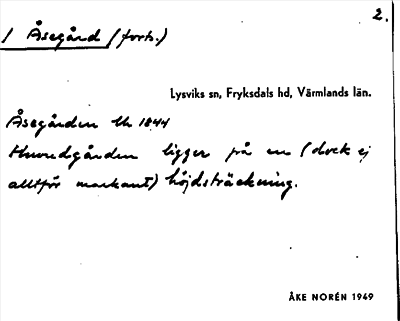 2.
1 Åsegård (forts.)
Lysviks sn, Fryksdals hd, Värmlands län.
Åsegården Uh 1844
Huvudgården ligger på en (dock ej
alltför markant) höjdsträckning.
ÅKE NORÉN 1949